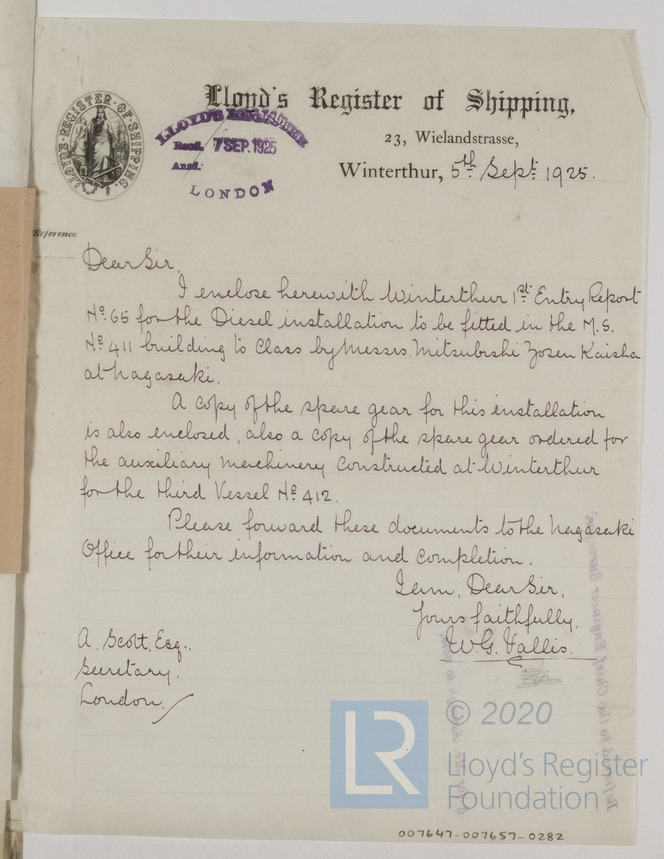 Lloyd's Register of Shipping,
LLOYD'S REGISTER OF SHIPPING
23, Wielandstrasse,
LLOYD'S REGISTER
Recd. 7 SEP. 1925
Ansd.
LONDON
Winterthur, 5th Sept. 1925.
Reference
Dear Sir,
I enclose herewith Winterthur 1st Entry Report
No. 65 for the Diesel installation to be fitted in the M.S.
No. 411 building to Class by Messrs. Mitsubishi Zosen Kaisha
at Nagasaki.
A copy of the spare gear for this installation
is also enclosed, also a copy of the spare gear ordered for
the auxiliary machinery constructed at Winterthur
for the third Vessel No. 412.
Please forward these documents to the Nagasaki
Office for their information and completion.
I am, Dear Sir,
Yours faithfully,
W.G. Vallis.
A. Scott, Esq.,
Secretary,
London.
LR
© 2020
Lloyd's Register
Foundation
007647-007657-0282